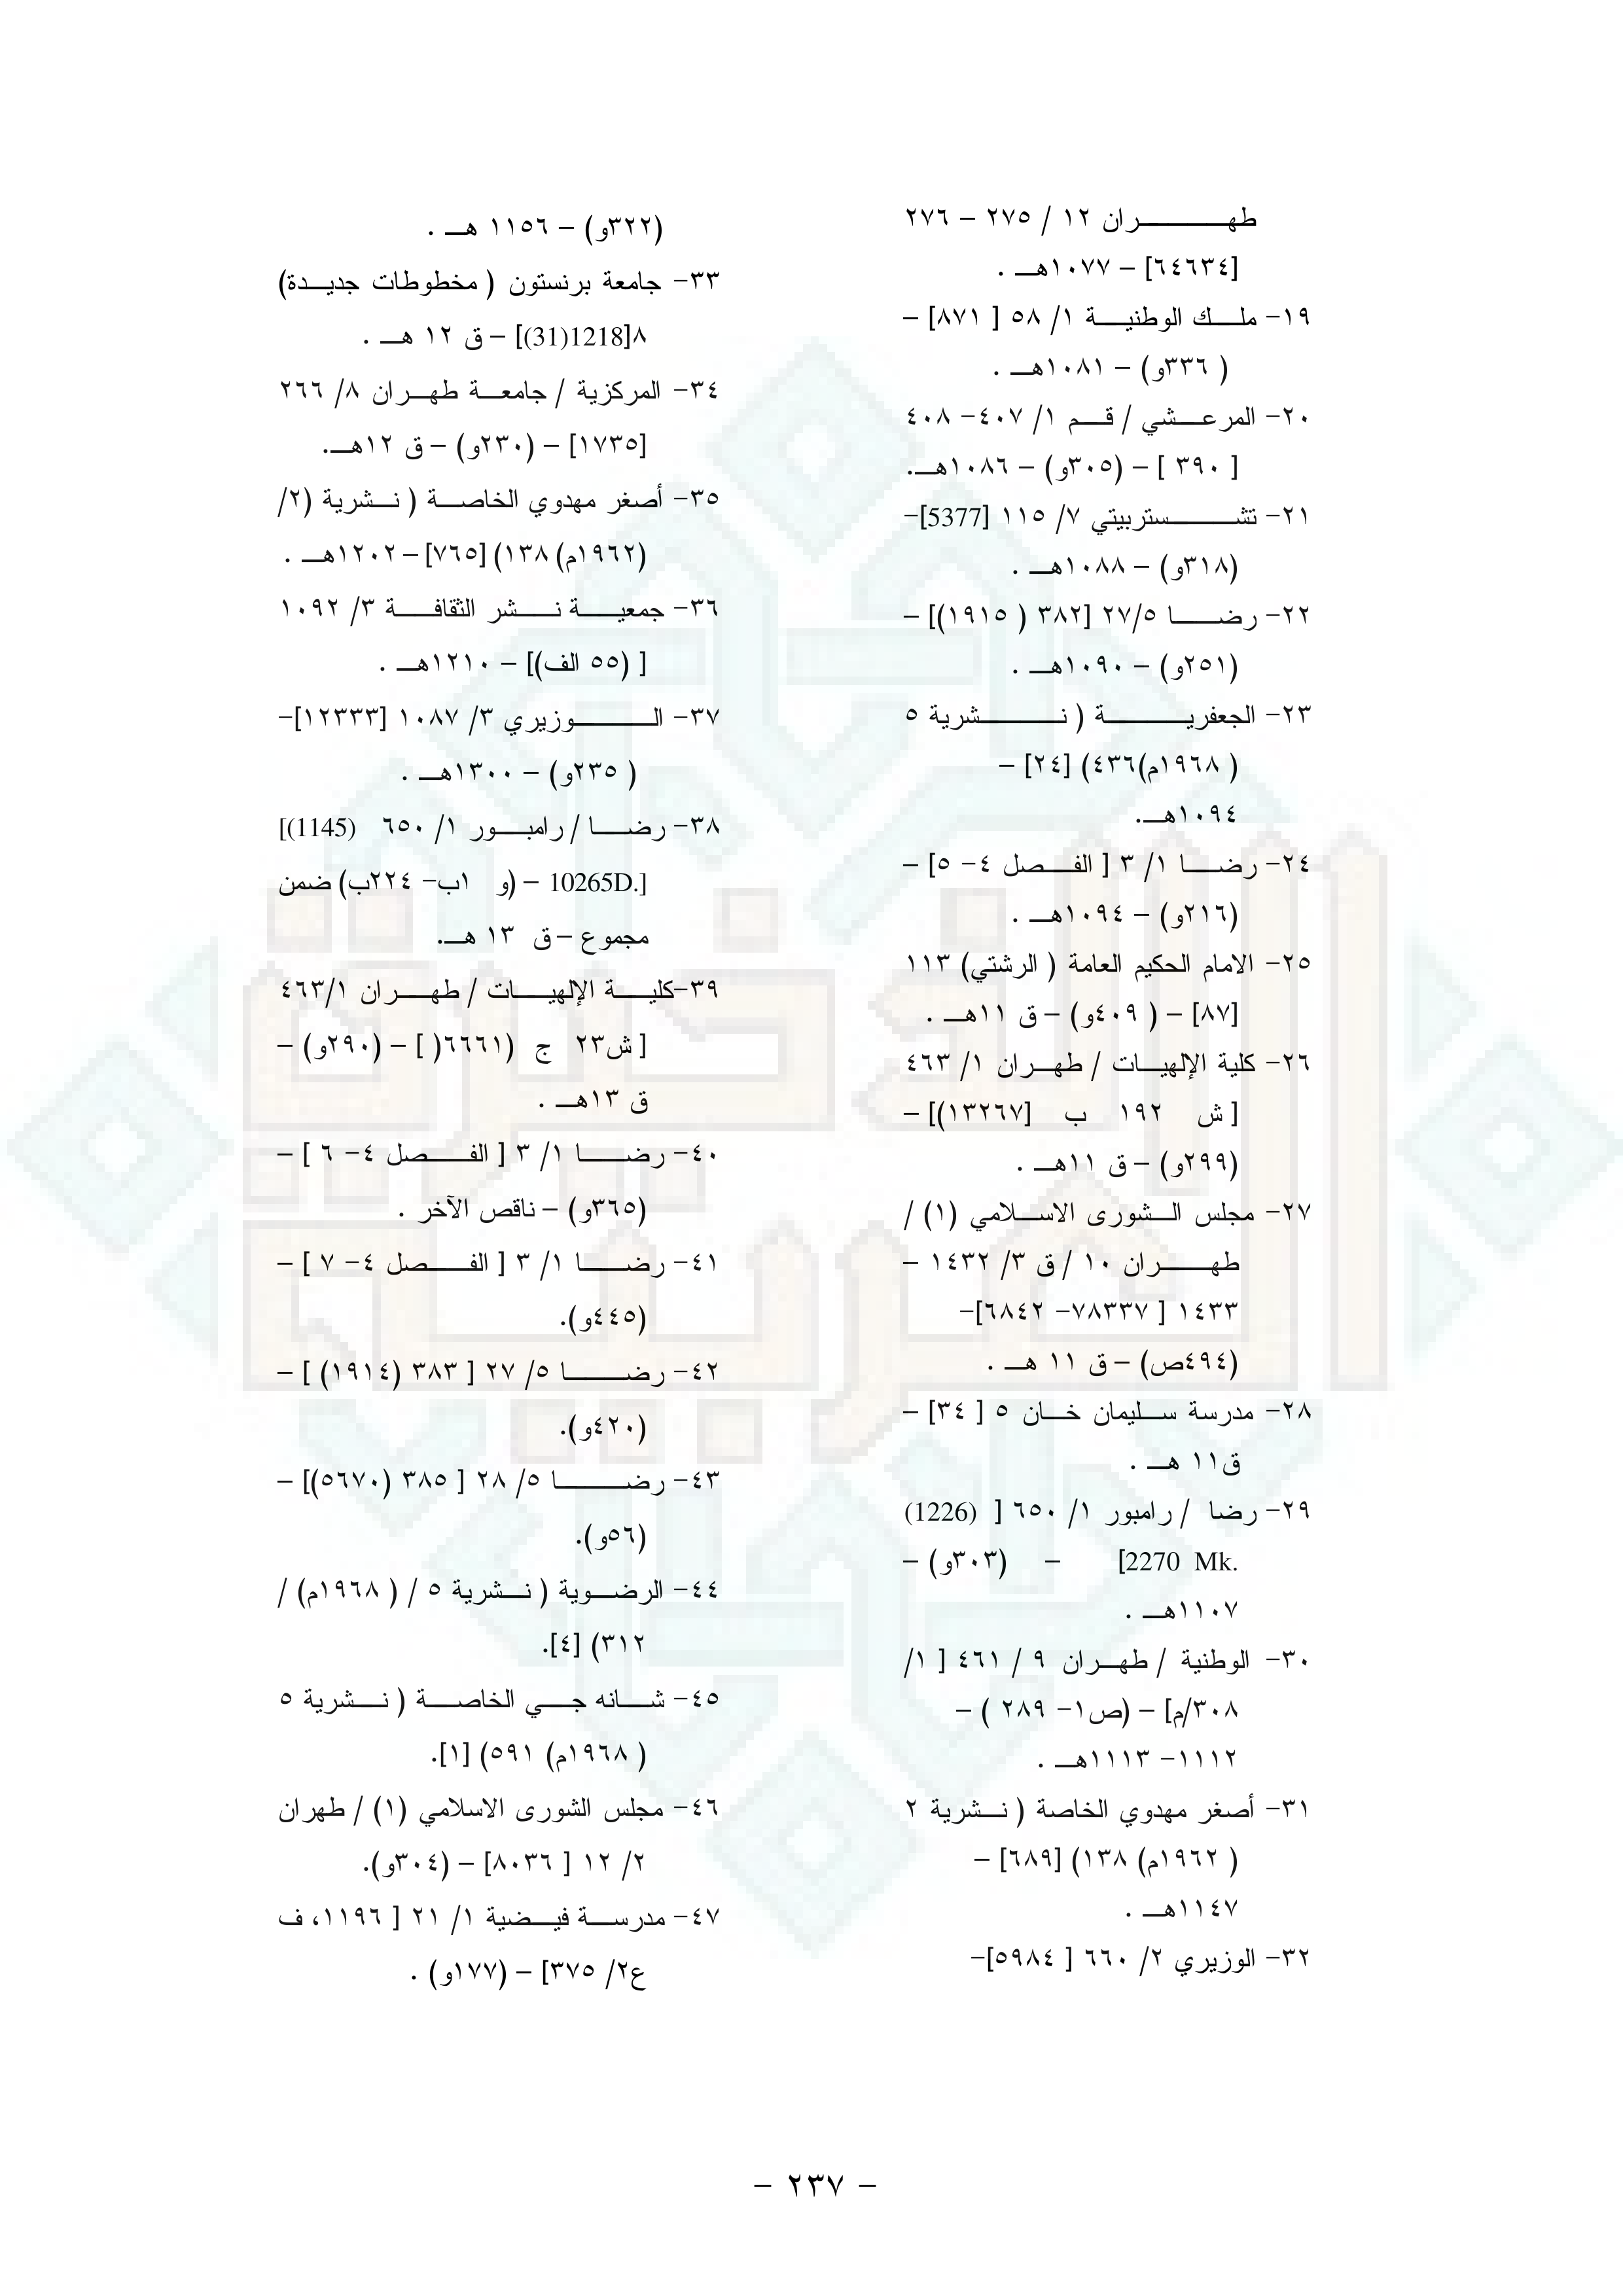 طهران ١٢ / ٢٧٥ – ٢٧٦
[٦٤٦٣٤] – ١٠٧٧هـ .
١٩- ملك الوطنية ١/ ٥٨ [ ٨٧١] –
( ٣٣٦و) – ١٠٨١هـ .
٢٠- المرعشي / قم ١/ ٤٠٧- ٤٠٨
[ ٣٩٠ ] – (٣٠٥و) – ١٠٨٦هـ.
٢١- تشستربيتي ٧/ ١١٥ [5377]-
(٣١٨و) – ١٠٨٨هـ .
٢٢- رضا ٢٧/٥ [٣٨٢ ( ١٩١٥)] –
(٢٥١و) – ١٠٩٠هـ .
٢٣- الجعفرية ( نشرية ٥
( ١٩٦٨م)٤٣٦) [٢٤] –
١٠٩٤هـ.
٢٤- رضا ١/ ٣ [ الفصل ٤- ٥] –
(٢١٦و) – ١٠٩٤هـ .
٢٥- الامام الحكيم العامة ( الرشتي) ١١٣
[٨٧] – ( ٤٠٩و) – ق ١١هـ .
٢٦- كلية الإلهيات / طهران ١/ ٤٦٣
[ ش ١٩٢ ب [١٣٢٦٧)] –
(٢٩٩و) – ق ١١هـ .
٢٧- مجلس الشورى الاسلامي (١) /
طهران ١٠ / ق ٣/ ١٤٣٢ –
١٤٣٣ [ ٧٨٣٣٧- ٦٨٤٢]-
(٤٩٤ص) – ق ١١ هـ .
٢٨- مدرسة سليمان خان ٥ [ ٣٤] –
ق١١ هـ .
٢٩- رضا / رامبور ١/ ٦٥٠ [ (1226)
2270 Mk.] – (٣٠٣و) –
١١٠٧هـ .
٣٠- الوطنية / طهران ٩ / ٤٦١ [ ١/
٣٠٨/م] – (ص١- ٢٨٩ ) –
١١١٢- ١١١٣هـ .
٣١- أصغر مهدوي الخاصة ( نشرية ٢
( ١٩٦٢م) ١٣٨) [٦٨٩] –
١١٤٧هـ .
٣٢- الوزيري ٢/ ٦٦٠ [ ٥٩٨٤]-
(٣٢٢و) – ١١٥٦ هـ .
٣٣- جامعة برنستون ( مخطوطات جديدة)
٨[1218(31)] – ق ١٢ هـ .
٣٤- المركزية / جامعة طهران ٨/ ٢٦٦
[١٧٣٥] – (٢٣٠و) – ق ١٢هـ.
٣٥- أصغر مهدوي الخاصة ( نشرية (٢/
(١٩٦٢م) ١٣٨) [٧٦٥] – ١٢٠٢هـ .
٣٦- جمعية نشر الثقافة ٣/ ١٠٩٢
[ (٥٥ الف)] – ١٢١٠هـ .
٣٧- الوزيري ٣/ ١٠٨٧ [١٢٣٣٣]-
( ٢٣٥و) – ١٣٠٠هـ .
٣٨- رضا / رامبور ١/ ٦٥٠ (1145)]
[.10265D – (و ١ب- ٢٢٤ب) ضمن
مجموع – ق ١٣ هـ.
٣٩-كلية الإلهيات / طهران ٤٦٣/١
[ ش٢٣ ج (٦٦٦١( ] – (٢٩٠و) –
ق ١٣هـ .
٤٠- رضا ١/ ٣ [ الفصل ٤- ٦ ] –
(٣٦٥و) – ناقص الآخر .
٤١- رضا ١/ ٣ [ الفصل ٤- ٧ ] –
(٤٤٥و).
٤٢- رضا ٥/ ٢٧ [ ٣٨٣ (١٩١٤) ] –
(٤٢٠و).
٤٣- رضا ٥/ ٢٨ [ ٣٨٥ (٥٦٧٠)] –
(٥٦و).
٤٤- الرضوية ( نشرية ٥ / ( ١٩٦٨م) /
٣١٢) [٤].
٤٥- شانه جي الخاصة ( نشرية ٥
( ١٩٦٨م) ٥٩١) [١].
٤٦- مجلس الشورى الاسلامي (١) / طهران
٢/ ١٢ [ ٨٠٣٦] – (٣٠٤و).
٤٧- مدرسة فيضية ١/ ٢١ [ ١١٩٦، ف
ع٢/ ٣٧٥] – (١٧٧و) .
– ٢٣٧ –